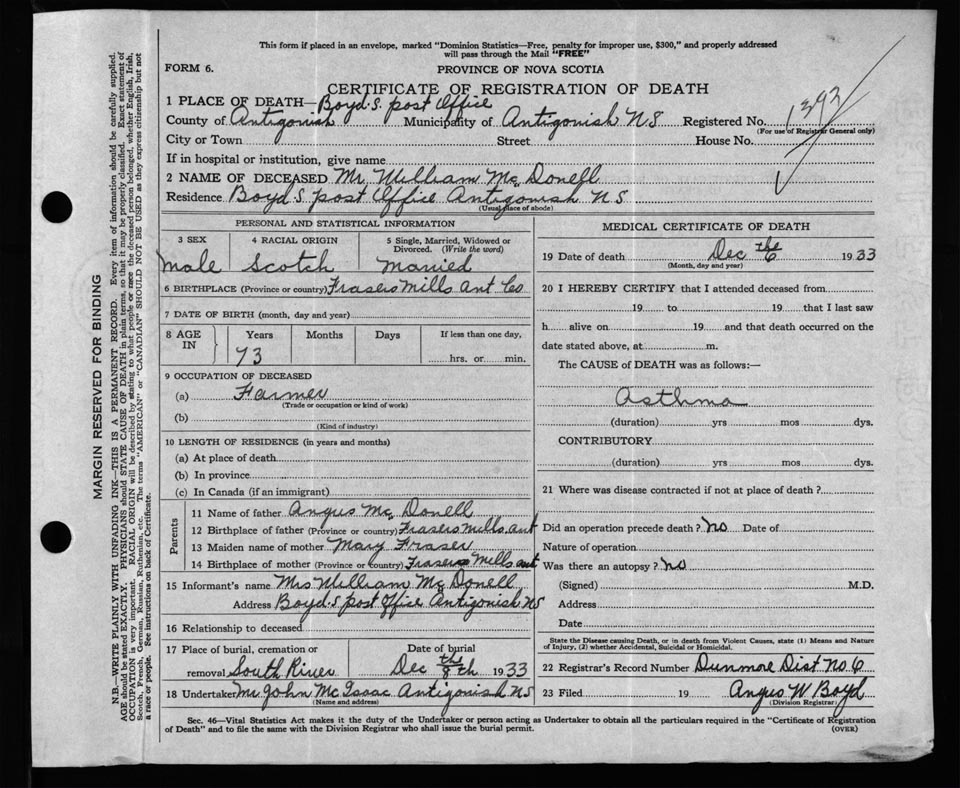 This form if placed in an envelope, marked "Dominion Statistics—Free, penalty for improper use, $300," and properly addressed
will pass through the Mail "FREE"
FORM 6.
PROVINCE OF NOVA SCOTIA
CERTIFICATE OF REGISTRATION OF DEATH
1 PLACE OF DEATH—Boyd.S. post Office
County of Antigonish Municipality of Antigonish N S Registered No. 1392
(For use of Registrar General only)
City or Town Street House No.
If in hospital or institution, give name
2 NAME OF DECEASED Mr. William Mc Donell
Residence Boyd.S. post Office Antigonish N S
(Usual place of abode)
PERSONAL AND STATISTICAL INFORMATION
3 SEX 4 RACIAL ORIGIN 5 Single, Married, Widowed or
Divorced. (Write the word)
Male Scotch Married
6 BIRTHPLACE (Province or country) Frasers Mills Ant Co
7 DATE OF BIRTH (month, day and year)
8 AGE IN Years Months Days If less than one day,
73 hrs. or min.
9 OCCUPATION OF DECEASED
(a) Farmer
(Trade or occupation or kind of work)
(b)
(Kind of industry)
10 LENGTH OF RESIDENCE (in years and months)
(a) At place of death
(b) In province
(c) In Canada (if an immigrant)
Parents
11 Name of father Angus Mc Donell
12 Birthplace of father (Province or country) Frasers mills. ant
13 Maiden name of mother Mary Fraser
14 Birthplace of mother (Province or country) Frasers Mills. ant
15 Informant's name Mrs William Mc Donell
Address Boyd.S post Office Antigonish N S
16 Relationship to deceased
17 Place of burial, cremation or Date of burial
removal South River Dec the 8th 1933
18 Undertaker Mr John Mc Isaac Antigonish N S
(Name and address)
MEDICAL CERTIFICATE OF DEATH
19 Date of death Dec the 6 1933
(Month, day and year)
20 I HEREBY CERTIFY that I attended deceased from
19 to 19 that I last saw
h alive on 19 and that death occurred on the
date stated above, at m.
The CAUSE of DEATH was as follows:—
Asthma
(duration) yrs mos dys.
CONTRIBUTORY
(duration) yrs mos dys.
21 Where was disease contracted if not at place of death ?
Did an operation precede death ? No Date of
Nature of operation
Was there an autopsy ? no
(Signed) M.D.
Address
Date
State the Disease causing Death, or in death from Violent Causes, state (1) Means and Nature
of Injury, (2) whether Accidental, Suicidal or Homicidal.
22 Registrar's Record Number Dunmore Dist No. 6
23 Filed 19 Angus W Boyd
(Division Registrar)
Sec. 46—Vital Statistics Act makes it the duty of the Undertaker or person acting as Undertaker to obtain all the particulars required in the "Certificate of Registration
of Death" and to file the same with the Division Registrar who shall issue the burial permit.
(OVER)
MARGIN RESERVED FOR BINDING
N.B.—WRITE PLAINLY WITH UNFADING INK—THIS IS A PERMANENT RECORD. Every item of information should be carefully supplied.
AGE should be stated EXACTLY. PHYSICIANS should STATE CAUSE OF DEATH in plain terms, so that it may be properly classified. Exact statement of
OCCUPATION is very important. RACIAL ORIGIN will be described by stating to what people or race the deceased person belonged, whether English, Irish,
Scotch, French, German, Russian, Ruthenian, etc. The terms "AMERICAN" or "CANADIAN" SHOULD NOT BE USED as they express citizenship but not
a race or people. See instructions on back of Certificate.